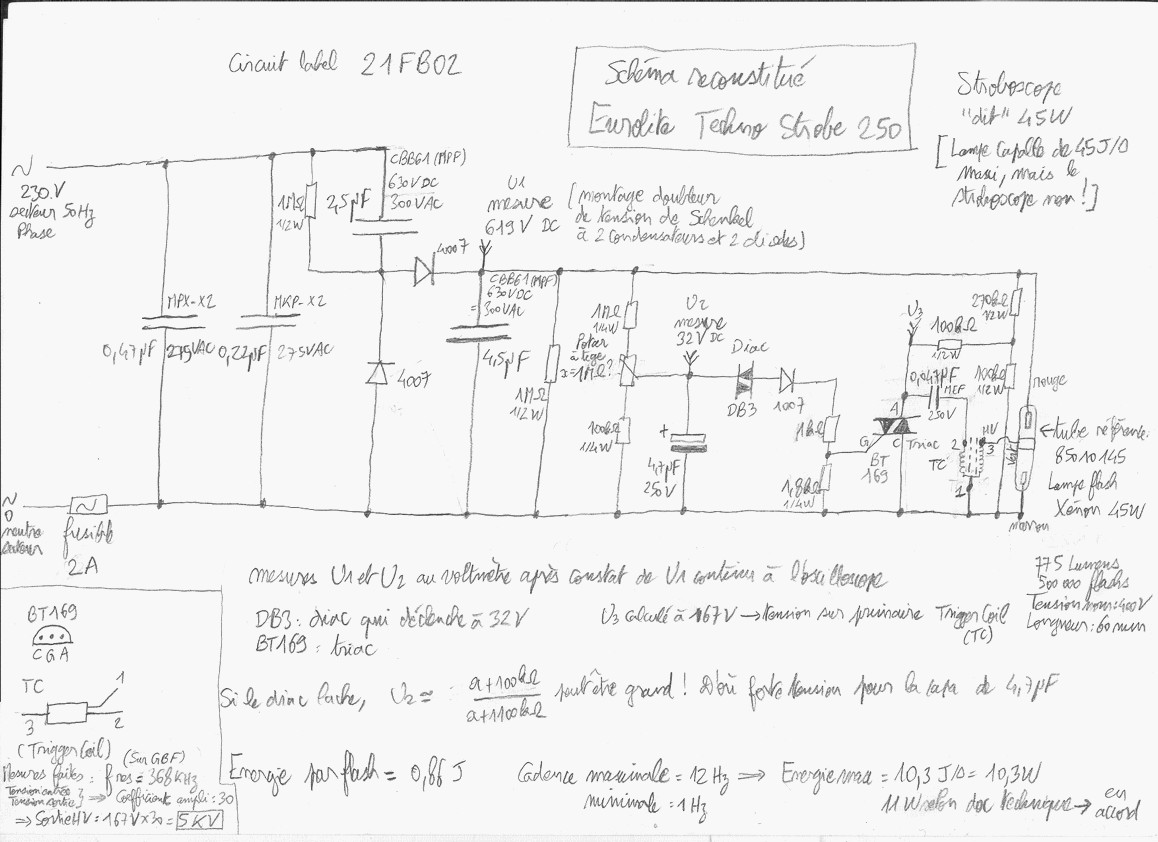 Circuit label 21FB02
Schéma reconstitué
Eurolite Techno Strobe 250
Stroboscope
"dit" 45W
[Lampe capable de 45J/s
maxi, mais le
stroboscope non !]
230V
secteur 50Hz
Phase
1MΩ
1/2W
2,5µF
CBB61 (MPP)
630VDC
300VAC
U1
mesure
619V DC
[montage doubleur
de tension de Schenkel
à 2 condensateurs et 2 diodes)
4007
MPX-X2
0,47µF
275VAC
MKP-X2
0,22µF
275VAC
4007
CBB61(MPP)
630VDC
= 300VAC
4,5µF
1MΩ
1/2W
1MΩ
1/4W
Potar
à tige
x=1MΩ?
100kΩ
1/4W
U2
mesure
32V DC
+
4,7µF
250V
Diac
DB3
1007
1kΩ
1,8kΩ
1/4W
G
A
C
Triac
BT
169
U3
100kΩ
1/2W
0,047µF
MEF
250V
270kΩ
1/2W
100kΩ
1/2W
TC
2
HV
3
1
rouge
Vert
marron
tube référence:
85010145
Lampe flash
Xénon 45W
0
neutre
secteur
fusible
2A
775 Lumens
500 000 flashs
Tension nom: 400V
Longueur: 60mm
mesures U1 et U2 au voltmètre après constat de U1 continu à l'oscilloscope
DB3: diac qui déclenche à 32V
U3 calculé à 167V → tension sur primaire Trigger Coil
(TC)
BT169: triac
Si le diac lache, U2 ≃ a+100kΩ / a+1100kΩ peut être grand ! D'où forte tension pour la capa de 4,7µF
Energie par flash = 0,86 J
Cadence maximale = 12 Hz ⇒ Energie max = 10,3 J/s = 10,3W
minimale = 1Hz
11W selon doc technique → en
accord
BT169
C G A
TC
1
3
2
(Trigger Coil)
(Sur GBF)
Mesures faites: fres = 368kHz
Tension entrée
Tension sortie
} ⇒ Coefficient ampli: 30
⇒ Sortie HV = 167V x 30 = 5KV